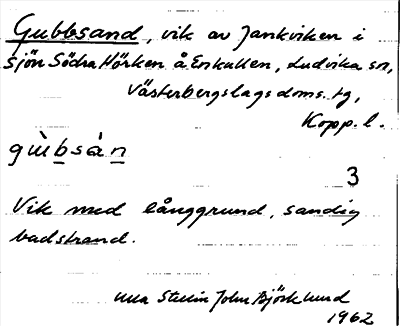 Gubbsand, vik av Jankviken i
sjön Södra Hörken å Enkullen, Ludvika sn,
Västerbergslags doms. tg,
Kopp. l.
gùbsàn
3
Vik med långgrund, sandig
badstrand.
Ulla Stelin John Björklund
1962